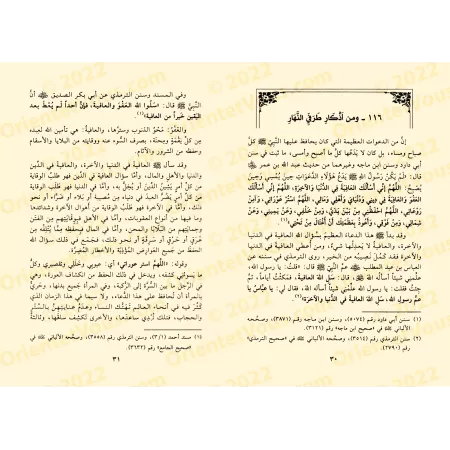 ١١٦ - ومن أذكار طَرَفَي النَّهار
إنَّ من الدعوات العظيمة التي كان يحافظ عليها النبي ﷺ كلَّ
صباح ومساء، بل كان لا يَدَعُها كلَّ ما أصبح وأمسى، ما ثبت في سنن
أبي داود وسنن ابن ماجه وغيرهما من حديث عبد الله بن عمر
قال: لَمْ يَكُنْ رسولُ الله ﷺ يَدَعُ هَؤُلَاءِ الدَّعَوَاتِ حِينَ يُمْسِي وَحِينَ
يُصْبِحُ: اللَّهُمَّ إِنِّي أَسْأَلُكَ العَافِيَةَ فِي الدُّنْيَا وَالآخِرَةِ، اللَّهُمَّ إِنِّي أَسْأَلُكَ
العَفْوَ وَالعَافِيَةَ فِي دِينِي وَدُنْيَايَ وَأَهْلِي وَمَالِي، اللَّهُمَّ اسْتُرْ عَوْرَتِي، وَآمِنْ
رَوْعَاتِي، اللَّهُمَّ احْفَظْنِي مِنْ بَيْنِ يَدَيَّ، وَمِنْ خَلْفِي، وَعَنْ يَمِينِي، وَعَنْ
شِمَالِي، وَمِنْ فَوْقِي، وَأَعُوذُ بِعَظَمَتِكَ أَنْ أُغْتَالَ مِنْ تَحْتِي(١).
وقد بدأ ﷺ هذا الدعاء العظيم بسؤال الله العافية في الدنيا
والآخرة، والعافيةُ لا يَعدِلُها شيءٌ، ومن أُعطي العافية في الدنيا
والآخرة فقد كَمُلَ نَصِيبُه من الخير، روى الترمذي في سننه عن
العباس بن عبد المطلب عمِّ النبيِّ ﷺ قال: «قلتُ: يا رسول الله،
علِّمني شيئًا أسأله الله، قال: سَلِ الله العافيةَ، فمكثتُ أيامًا ثم
جئتُ فقلتُ: يا رسول الله علِّمني شيئًا أسأله الله، فقال لي: يا عبَّاسُ يا
عمَّ رسول الله، سَلِ اللهَ العافيةَ في الدُّنيا والآخرة»(٢).
(١) سنن أبي داود رقم (٥٠٧٤)، وسنن ابن ماجه رقم (٣٨٧١)، وصحّحه
الألباني في «صحيح ابن ماجه» رقم (٣١٢١).
(٢) سنن الترمذي رقم (٣٥١٤)، وصحّحه الألباني في «صحيح الترمذي»
رقم (٢٧٩٠).
٣٠
وفي المسند وسنن الترمذي عن أبي بكر الصديق أنَّ
النَّبِيَّ ﷺ قال: «سَلُوا اللهَ العَفْوَ والعافيةَ، فإنَّ أحدًا لَم يُعْطَ بعد
اليَقين خيرًا من العافية»(١).
والعَفْوُ: مَحْوُ الذنوب وسترُها، والعافيةُ: هي تأمين الله لعبده
مِنْ كلِّ نِقْمَةٍ ومِحنَةٍ، بصرف السوء عنه ووقايته من البلايا والأسقام
وحفظه من الشرور والآثام.
وقد سأل ﷺ العافية في الدنيا والآخرة، والعافية في الدِّين
والدنيا والأهل والمال، وأمَّا سؤال العافية في الدِّين فهو طلبُ الوقاية
من كلِّ أمرٍ يَشينُ الدِّين أو يُخِلُّ به، وأمَّا في الدنيا فهو طلبُ الوقاية
من كلِّ أمرٍ يَضُرُّ العبدَ في دنياه من مُصيبة أو بلاءٍ أو ضَرَّاء أو نحو
ذلك، وأمَّا في الآخرة فهو طلبُ الوقاية من أهوال الآخرة وشدائدها
وما فيها من أنواع العقوبات، وأمَّا في الأهل فبِوِقايتِهم مِن الفتن
وحِمايتِهم من البلايا والمحن، وأمَّا في المال فبِحفظِه ممَّا يُتْلِفُه مِن
غَرَقٍ أو حَرْقٍ أو سَرِقَةٍ أو نحو ذلك، فجَمَع في ذلك سؤالَ الله
الحفظَ من جميع العَوارِض المُؤْذِية والأخطار المُضِرَّة.
وقوله: «اللَّهُمَّ استر عوراتي» أي: عيوبي وخَلَلي وتقصيري وكلَّ
ما يَسوءُني كشفُه، ويَدخل في ذلك الحفظ من انكشاف العورة، وهي
في الرَّجل ما بين السُّرَّة إلى الرُّكبة، وفي المرأة جَميعُ بدنِها، وحَرِيٌّ
بالمرأة أن تُحافظَ على هذا الدُّعاء، ولا سيما في هذا الزمان الذي
كَثُرَ فيه في أنحاء العالم تَهَتُّكُ النساء وعدمُ عِنايتِهنَّ بالسِّتْر
والحجاب، فتلك تُبْدِي ساعدَها، والأخرى تَكشِفُ ساقَها، وثالثةٌ
(١) مسند أحمد (٣/١)، وسنن الترمذي رقم (٣٥٥٨)، وصحّحه الألباني في
«صحيح الجامع» رقم (٣٦٣٢).
٣١
2022